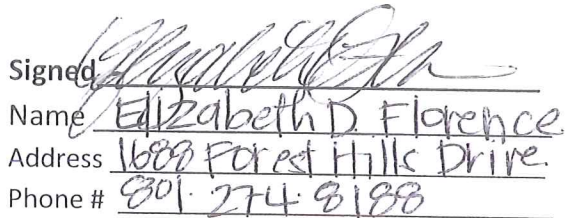 Signed
Name Elizabeth D. Florence
Address 1688 Forest Hills Drive
Phone # 801.274.8188